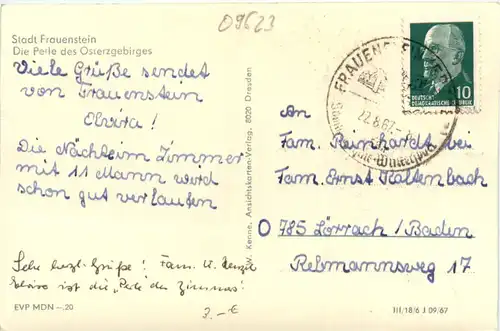 09623
Stadt Frauenstein
Die Perle des Osterzgebirges
Viele Grüße sendet
von Frauenstein
Elvira!
Die Nächte im Zimmer
mit 11 Mann wird
schon gut verlaufen
Sehr herzl. Grüße! Fam. W.
ist die "Perle des Zimmers"
3.-€
EVP MDN -.20
W. Kenne, Ansichtskarten-Verlag, 8020 Dresden
FRAUENSTEIN
22.8.67
10
DEUTSCHE
DEMOKRATISCHE REPUBLIK
An
Fam. Reinhardt bei
Fam. Ernst Kaltenbach
785 Lörrach/Baden
Rebmannsweg 17
III/18/6 J 09/67